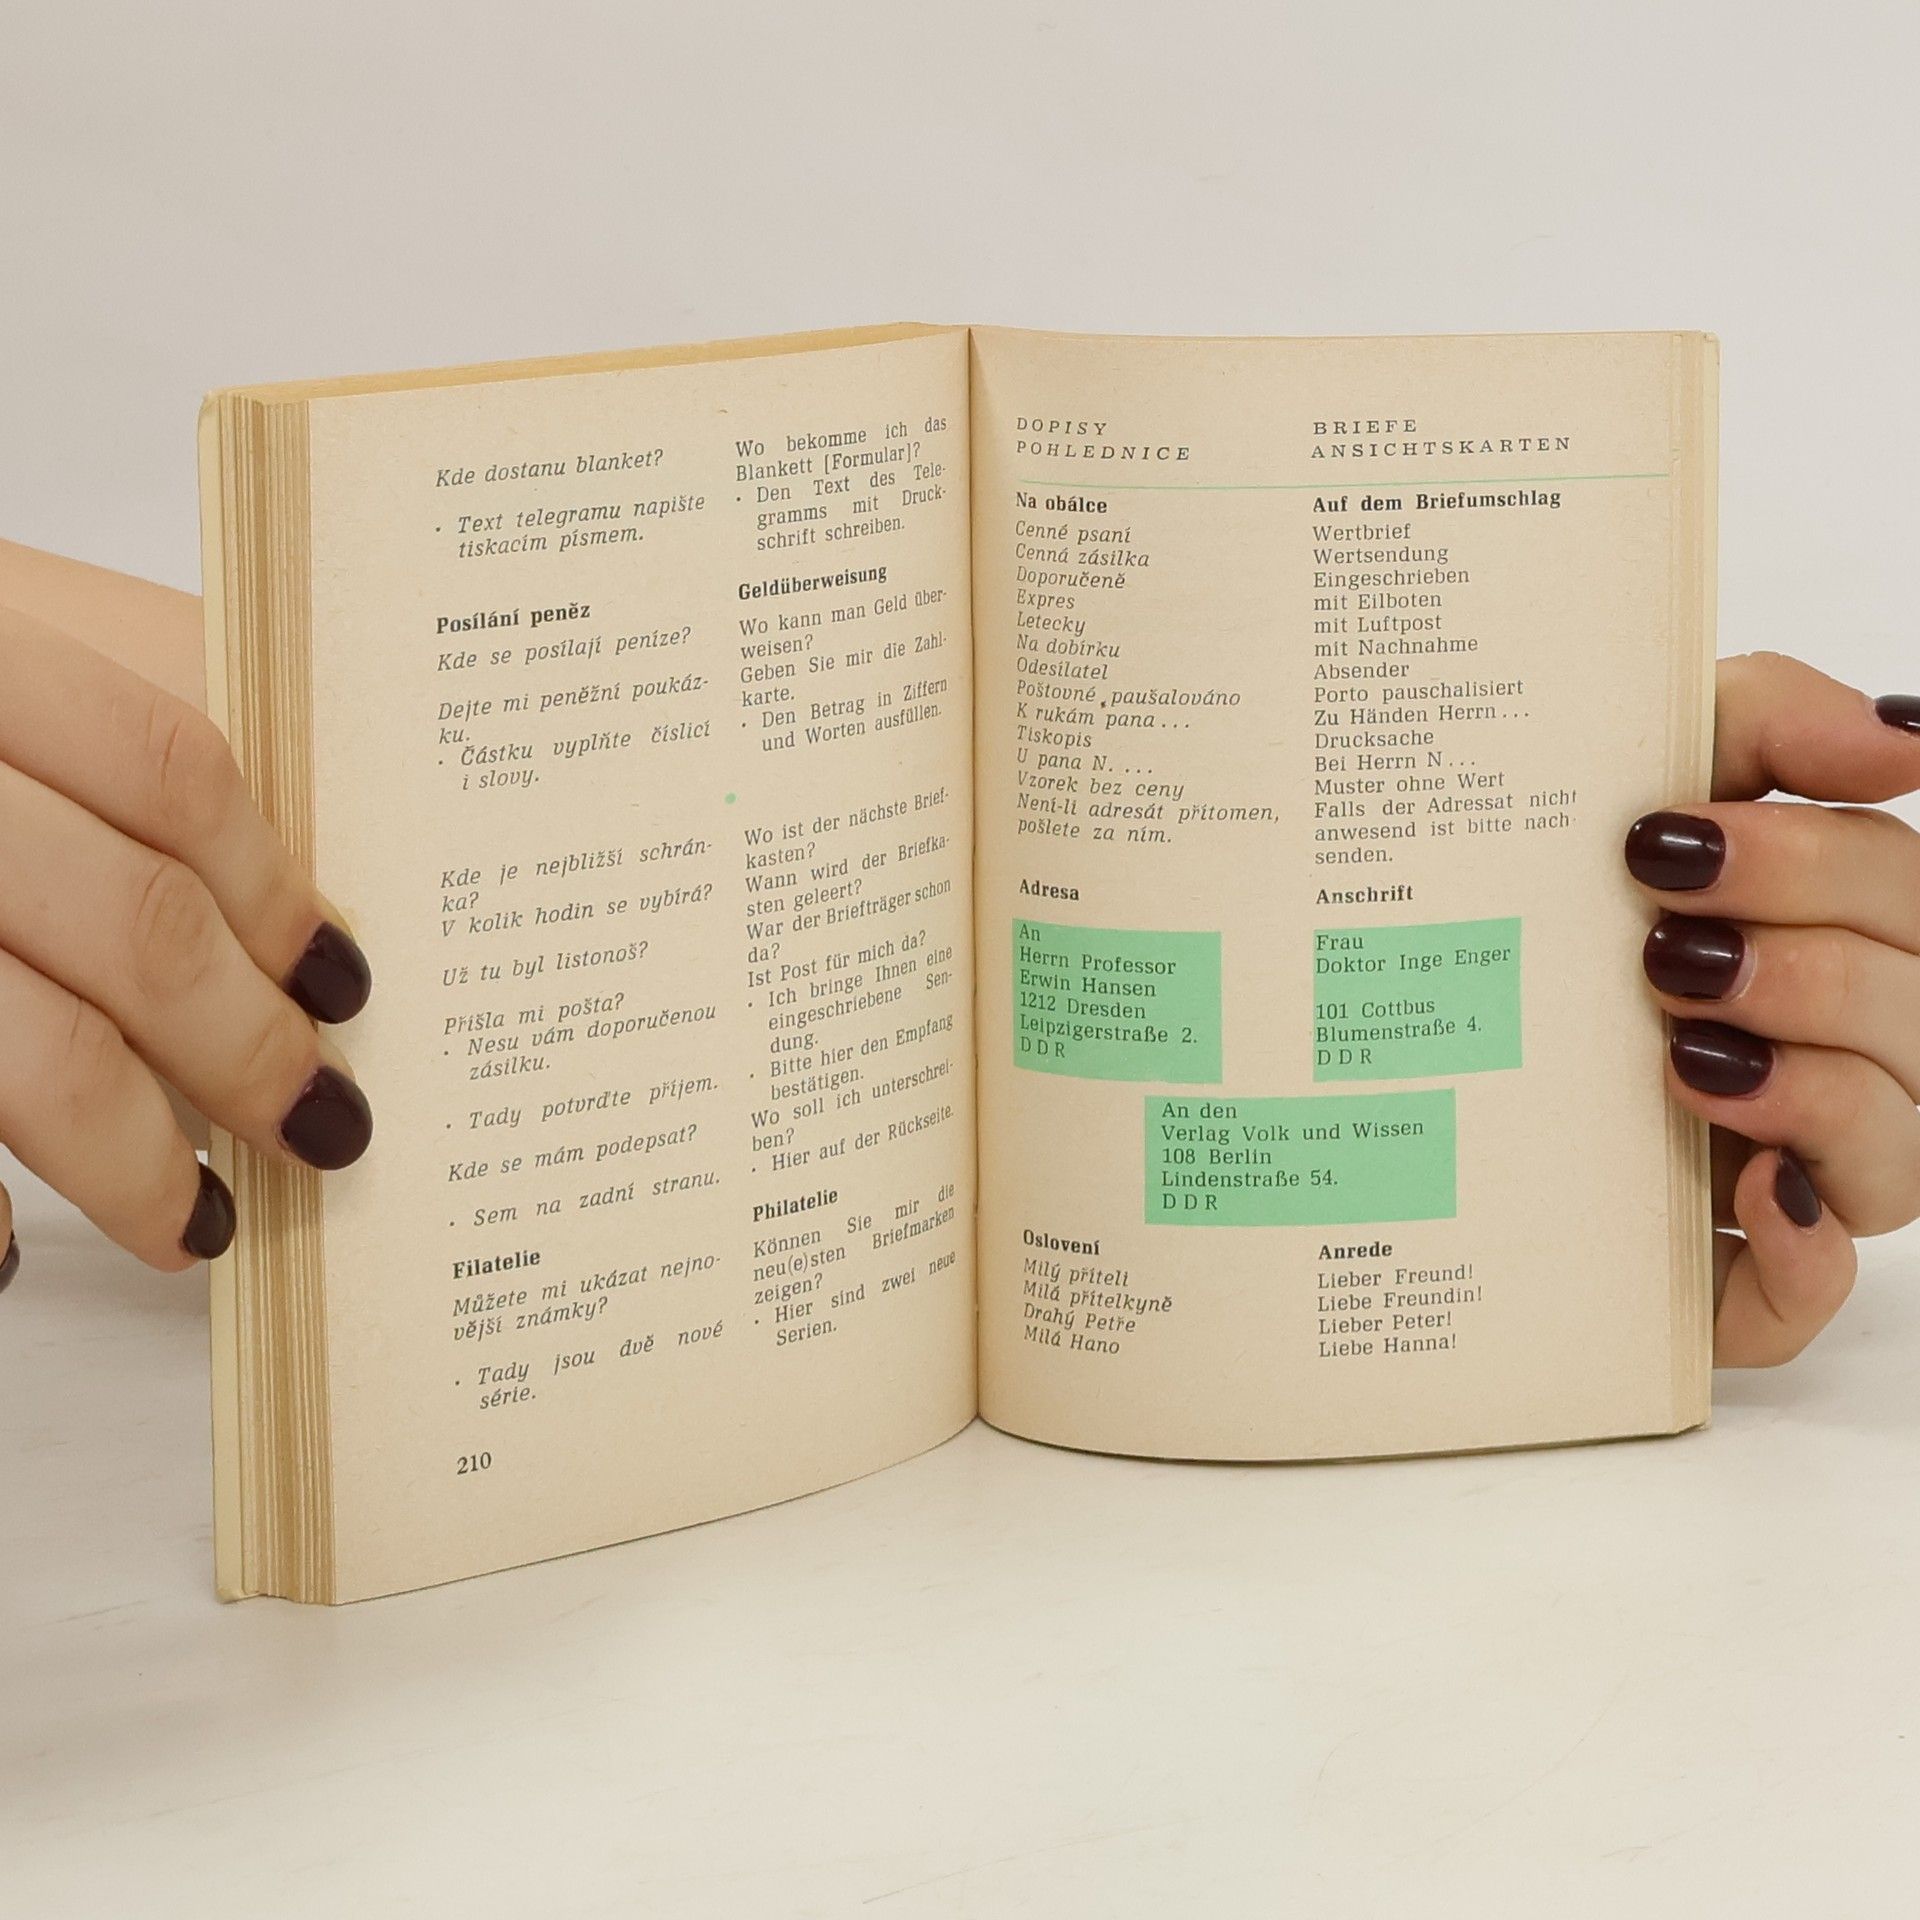 Kde dostanu blanket?
• Text telegramu napište
tiskacím písmem.
Posílání peněz
Kde se posílají peníze?
Dejte mi peněžní poukáz-
ku.
• Částku vyplňte číslicí
i slovy.
Kde je nejbližší schrán-
ka?
V kolik hodin se vybírá?
Už tu byl listonoš?
Přišla mi pošta?
• Nesu vám doporučenou
zásilku.
• Tady potvrďte příjem.
Kde se mám podepsat?
• Sem na zadní stranu.
Filatelie
Můžete mi ukázat nejno-
vější známky?
• Tady jsou dvě nové
série.
210
Wo bekomme ich das
Blankett [Formular]?
• Den Text des Tele-
gramms mit Druck-
schrift schreiben.
Geldüberweisung
Wo kann man Geld über-
weisen?
Geben Sie mir die Zahl-
karte.
• Den Betrag in Ziffern
und Worten ausfüllen.
Wo ist der nächste Brief-
kasten?
Wann wird der Briefka-
sten geleert?
War der Briefträger schon
da?
Ist Post für mich da?
• Ich bringe Ihnen eine
eingeschriebene Sen-
dung.
• Bitte hier den Empfang
bestätigen.
Wo soll ich unterschrei-
ben?
• Hier auf der Rückseite.
Philatelie
Können Sie mir die
neu(e)sten Briefmarken
zeigen?
• Hier sind zwei neue
Serien.
DOPISY
POHLEDNICE
BRIEFE
ANSICHTSKARTEN
Na obálce
Cenné psaní
Cenná zásilka
Doporučeně
Expres
Letecky
Na dobírku
Odesílatel
Poštovné paušalováno
K rukám pana...
Tiskopis
U pana N. ...
Vzorek bez ceny
Není-li adresát přítomen,
pošlete za ním.
Auf dem Briefumschlag
Wertbrief
Wertsendung
Eingeschrieben
mit Eilboten
mit Luftpost
mit Nachnahme
Absender
Porto pauschalisiert
Zu Händen Herrn...
Drucksache
Bei Herrn N...
Muster ohne Wert
Falls der Adressat nicht
anwesend ist bitte nach-
senden.
Adresa
Anschrift
An
Herrn Professor
Erwin Hansen
1212 Dresden
Leipzigerstraße 2.
DDR
Frau
Doktor Inge Enger
101 Cottbus
Blumenstraße 4.
DDR
An den
Verlag Volk und Wissen
108 Berlin
Lindenstraße 54.
DDR
Oslovení
Milý příteli
Milá přítelkyně
Drahý Petře
Milá Hano
Anrede
Lieber Freund!
Liebe Freundin!
Lieber Peter!
Liebe Hanna!